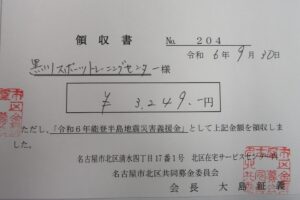 領収書 No. 204
令和 6年 9月 30日
黒川スポーツトレーニングセンター 様
¥ 3,249.-円
ただし、「令和6年能登半島地震災害義援金」として上記金額を領収しま
した。
名古屋市北区清水四丁目17番1号 北区在宅サービスセンター内
名古屋市北区共同募金委員会
会長 大島